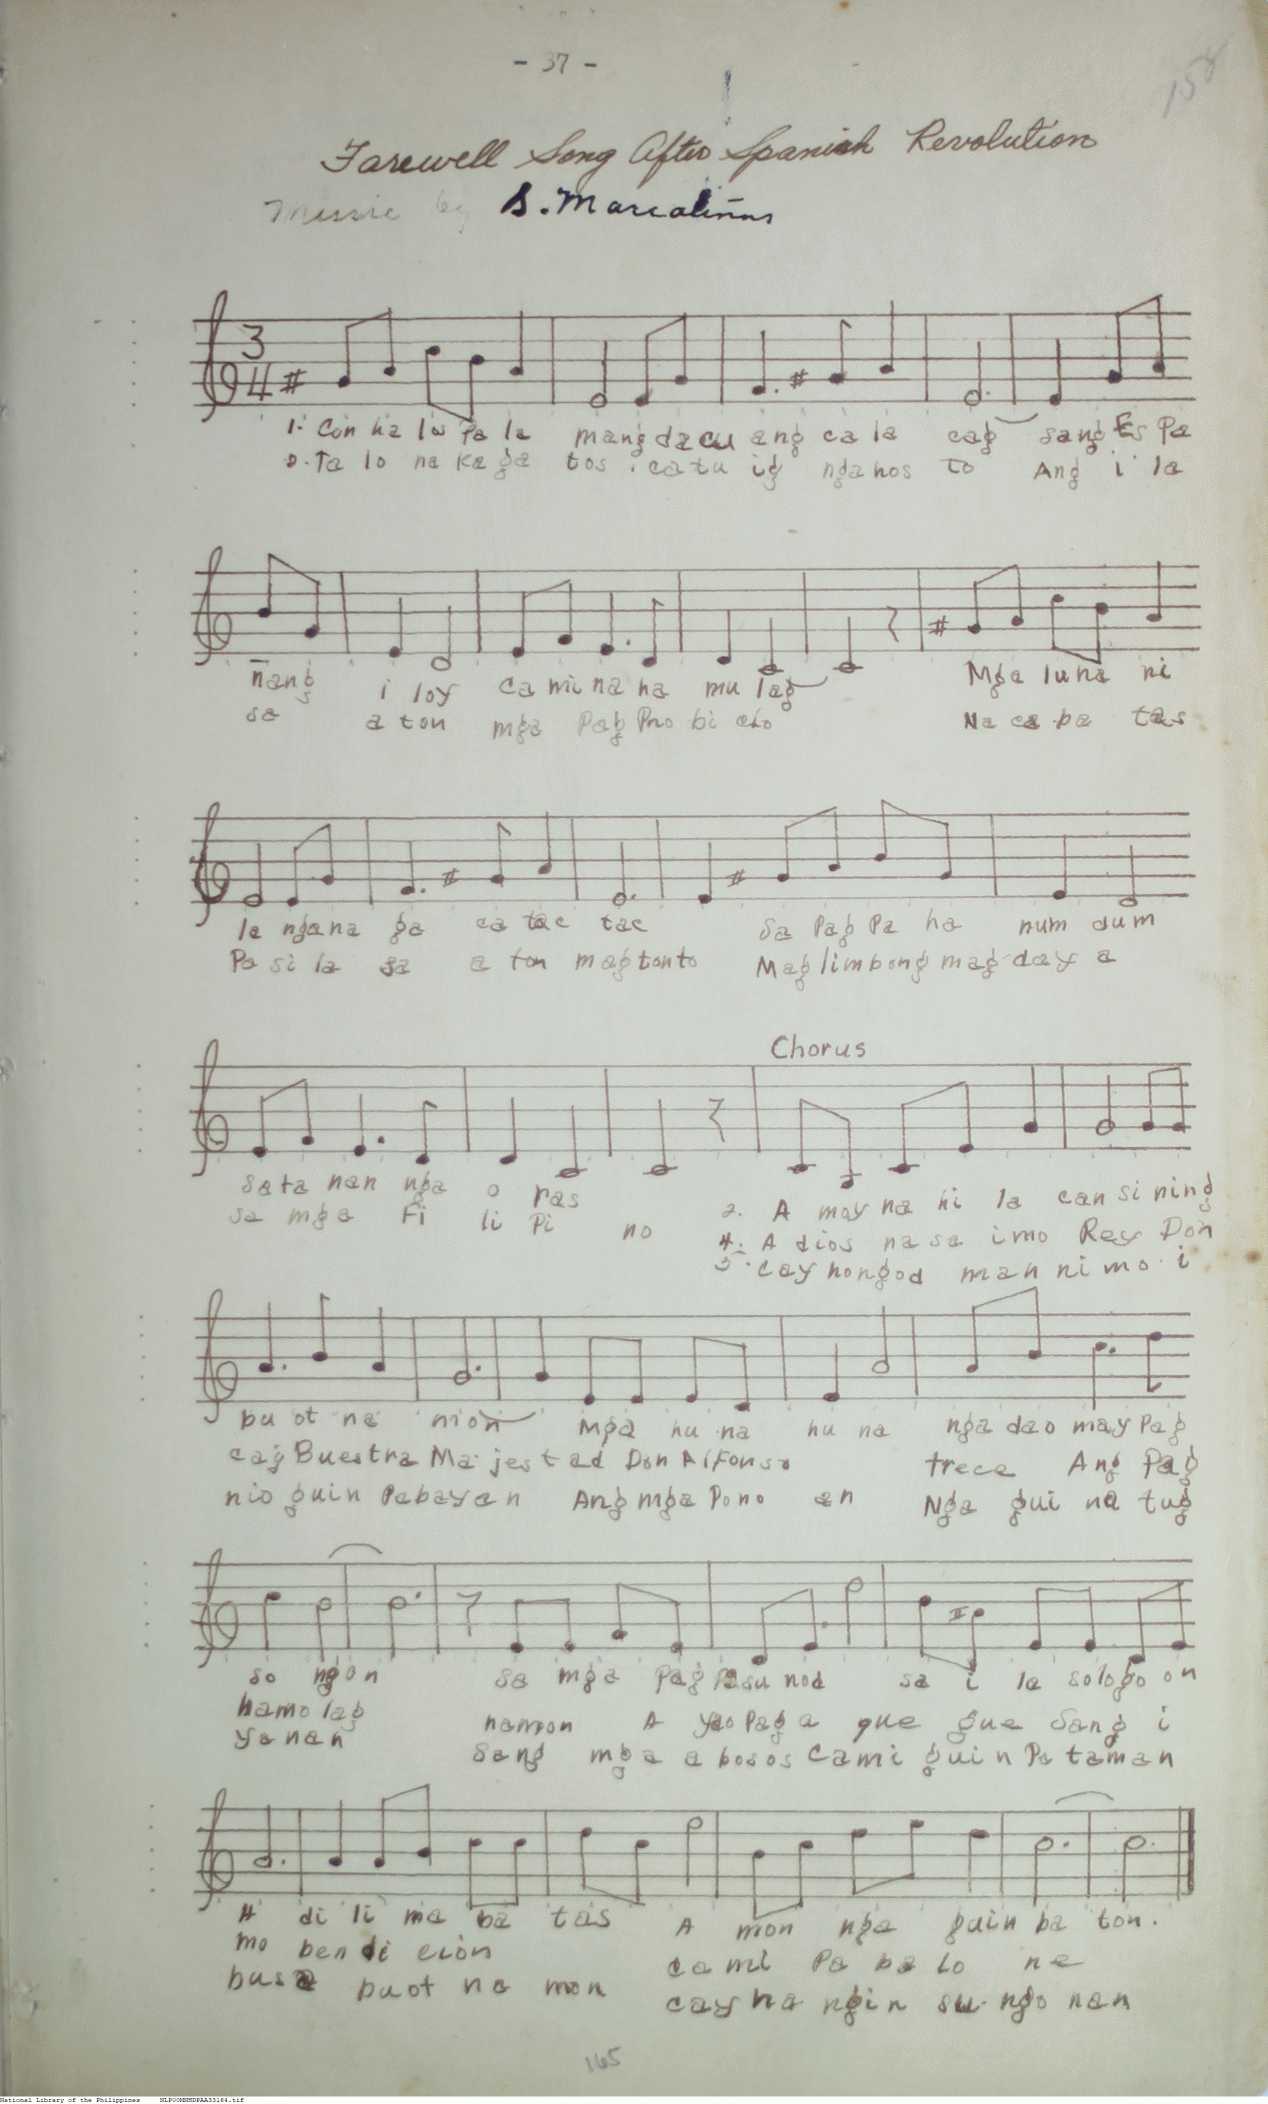 - 37 -
158
Farewell Song After Spanish Revolution
Music by S. Marcaliñas
3
4
1. Con ha lu pa la mang da cu ang ca la cag sang Es pa
Ta lo na ka ga tos . ca tu ig nga nos to Ang i la
ñang i loy ca mi na ha mu lag Mga luha ni
sa a ton mga Pag Pro bi cho Na ca ba tas
la nga na ga ca tac tac sa Pag Pa ha num dum
Pa si la sa a ton mag tonto Mag limbong mag day a
Chorus
sa ta nan nga o ras
sa mga Fi li Pi no
2. A may na hi la can si ning
4. A dios na sa imo Rey Don
5. cay hongod man ni mo i
bu ot na mon Mga hu na hu na nga dao may Pag
cag Buestra Ma jes t ad Don Alfonso trece Ang Pag
nio guin Pabayan Ang mga Pono an Nga gui na tug
so ngon sa mga Pag Pasu nod sa i la sologo on
hamo lag namon A yao Pag a que gue Sang i
yanan Sang mga a bosos Cami guin Pa taman
H di li ma ba tas A mon nga guin ba ton.
mo ben di ción ca mi Pa ba lo na
busa buot na mon cay ha ngin su ngo nan
165
National Library of the Philippines NLPOOMNHDPAA33164.tif